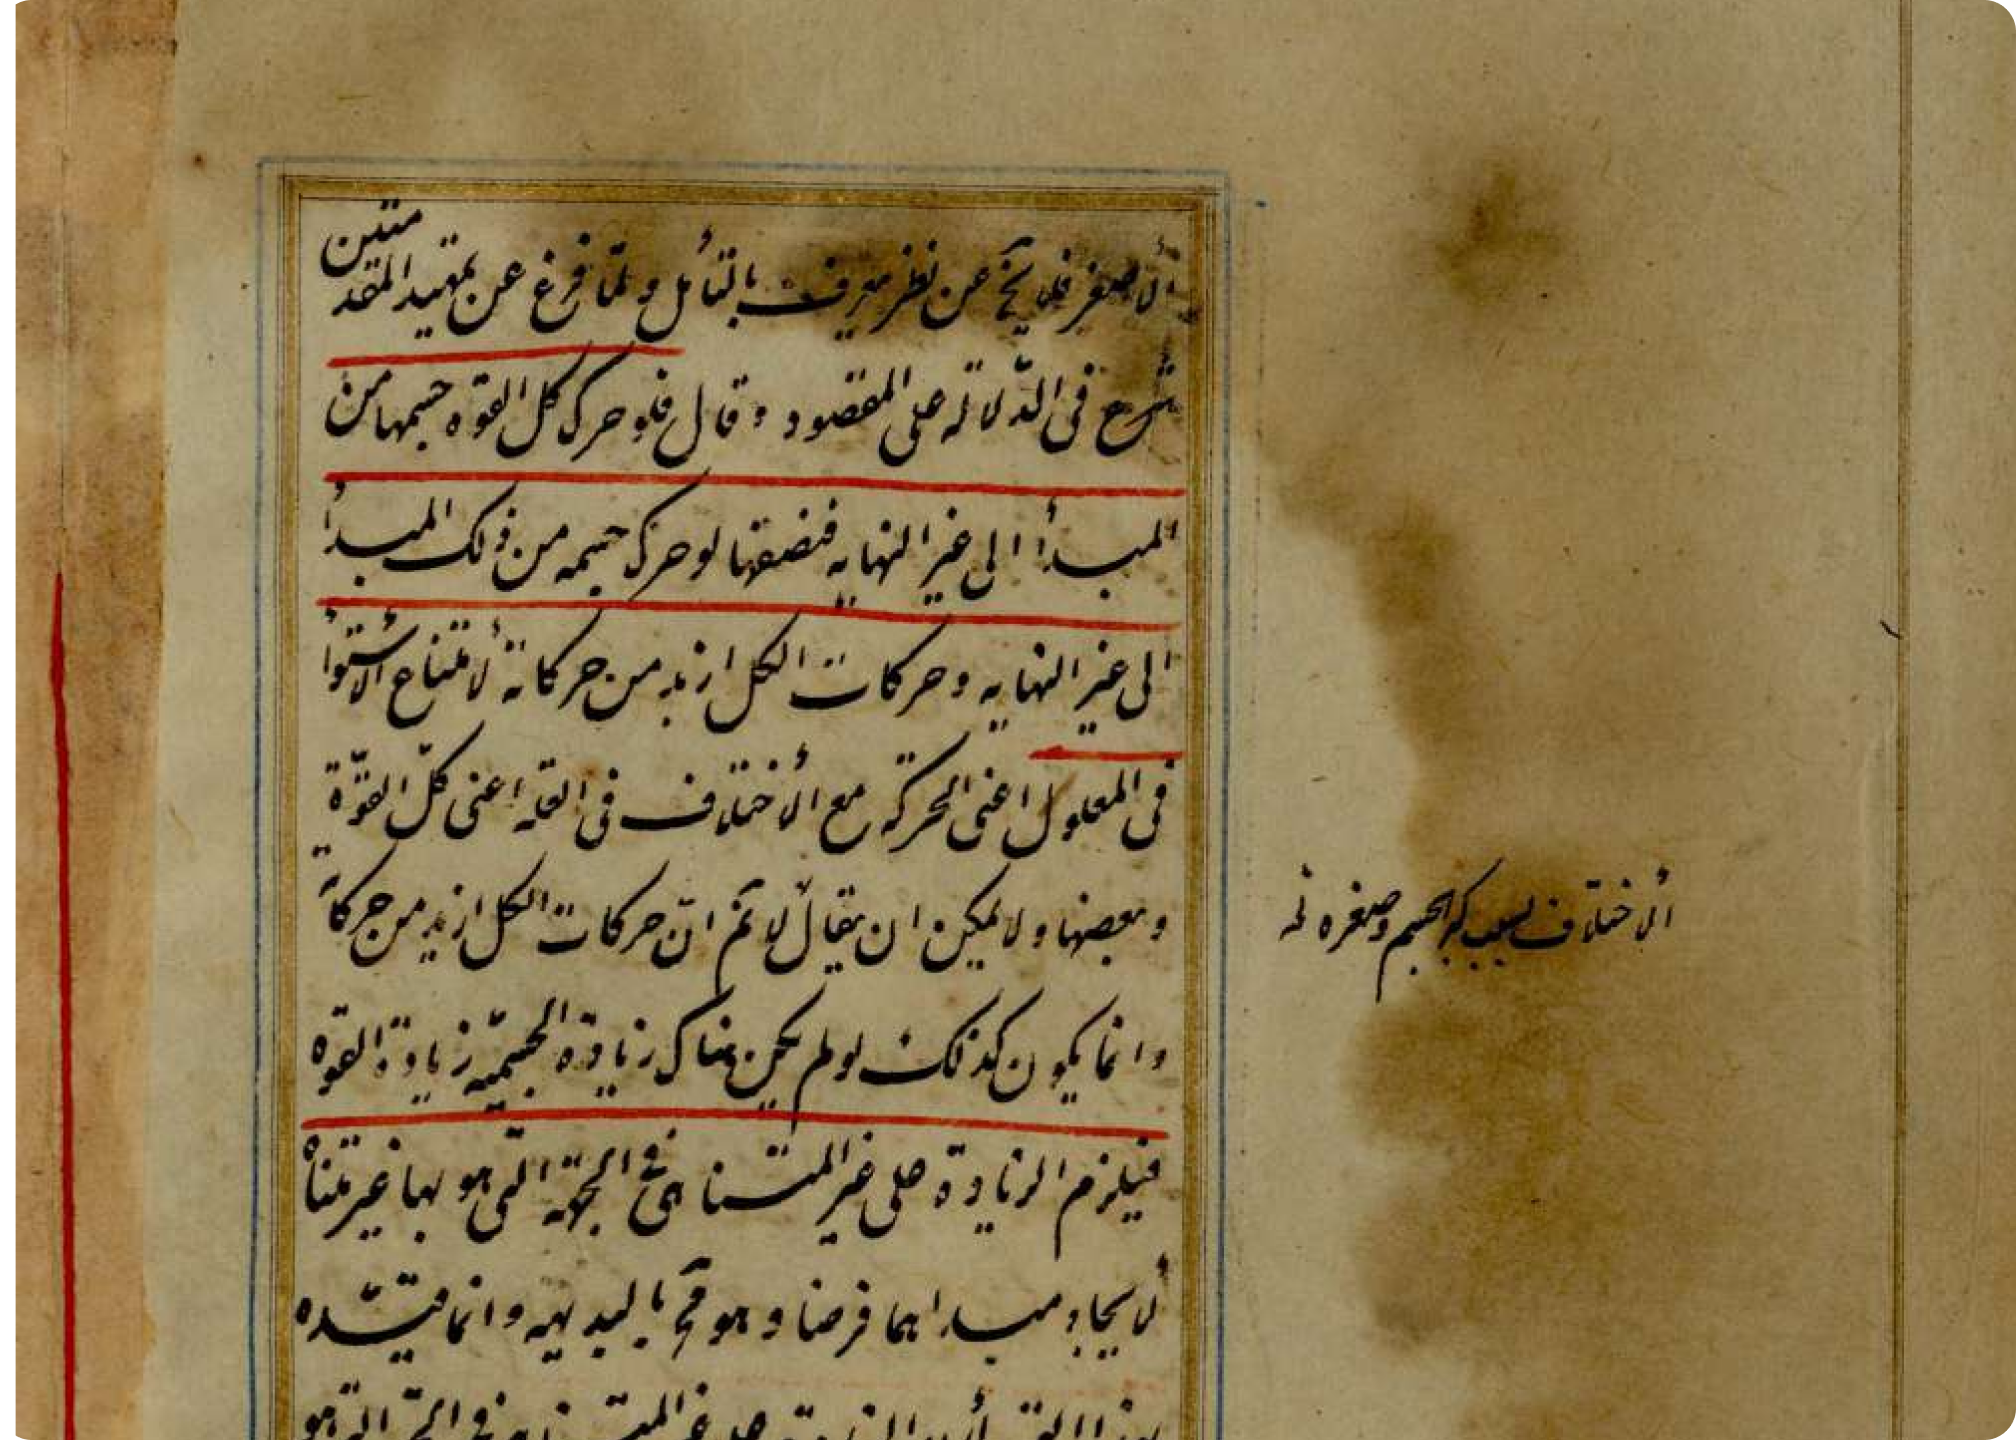 الأصغر فلا يخ عن نظر يعرف بالتأمل ولما فرغ عن تمهيد المقدمتين
شرع فى الدلالة على المقصود وقال فلو حرك كل القوه جسمها من
المبدأ الى غير النهايه فنصفها لو حرك جسمه من ذلك المبدأ
الى غير النهايه وحركات الكل ازيد من حركاته لأمتناع الأستوأ
فى المعلول اعنى الحركه مع الأختلاف فى العله اعنى كلّ القوّة
وبعضها ولا يمكن ان يقال لا نم انّ حركات الكل ازيد من حركاته
وانما يكون كذلك لو لم يكن هناك زيادة الجسميّه زيادة القوه
فيلزم الزيادة على غير المتناهى فى الجهة التى هو بها غير متناه
لأيجاد مبداهما فرضا وهو مح بالبديهه وانما قيّده
الأختلاف بسبب كبر الجسم وصغره